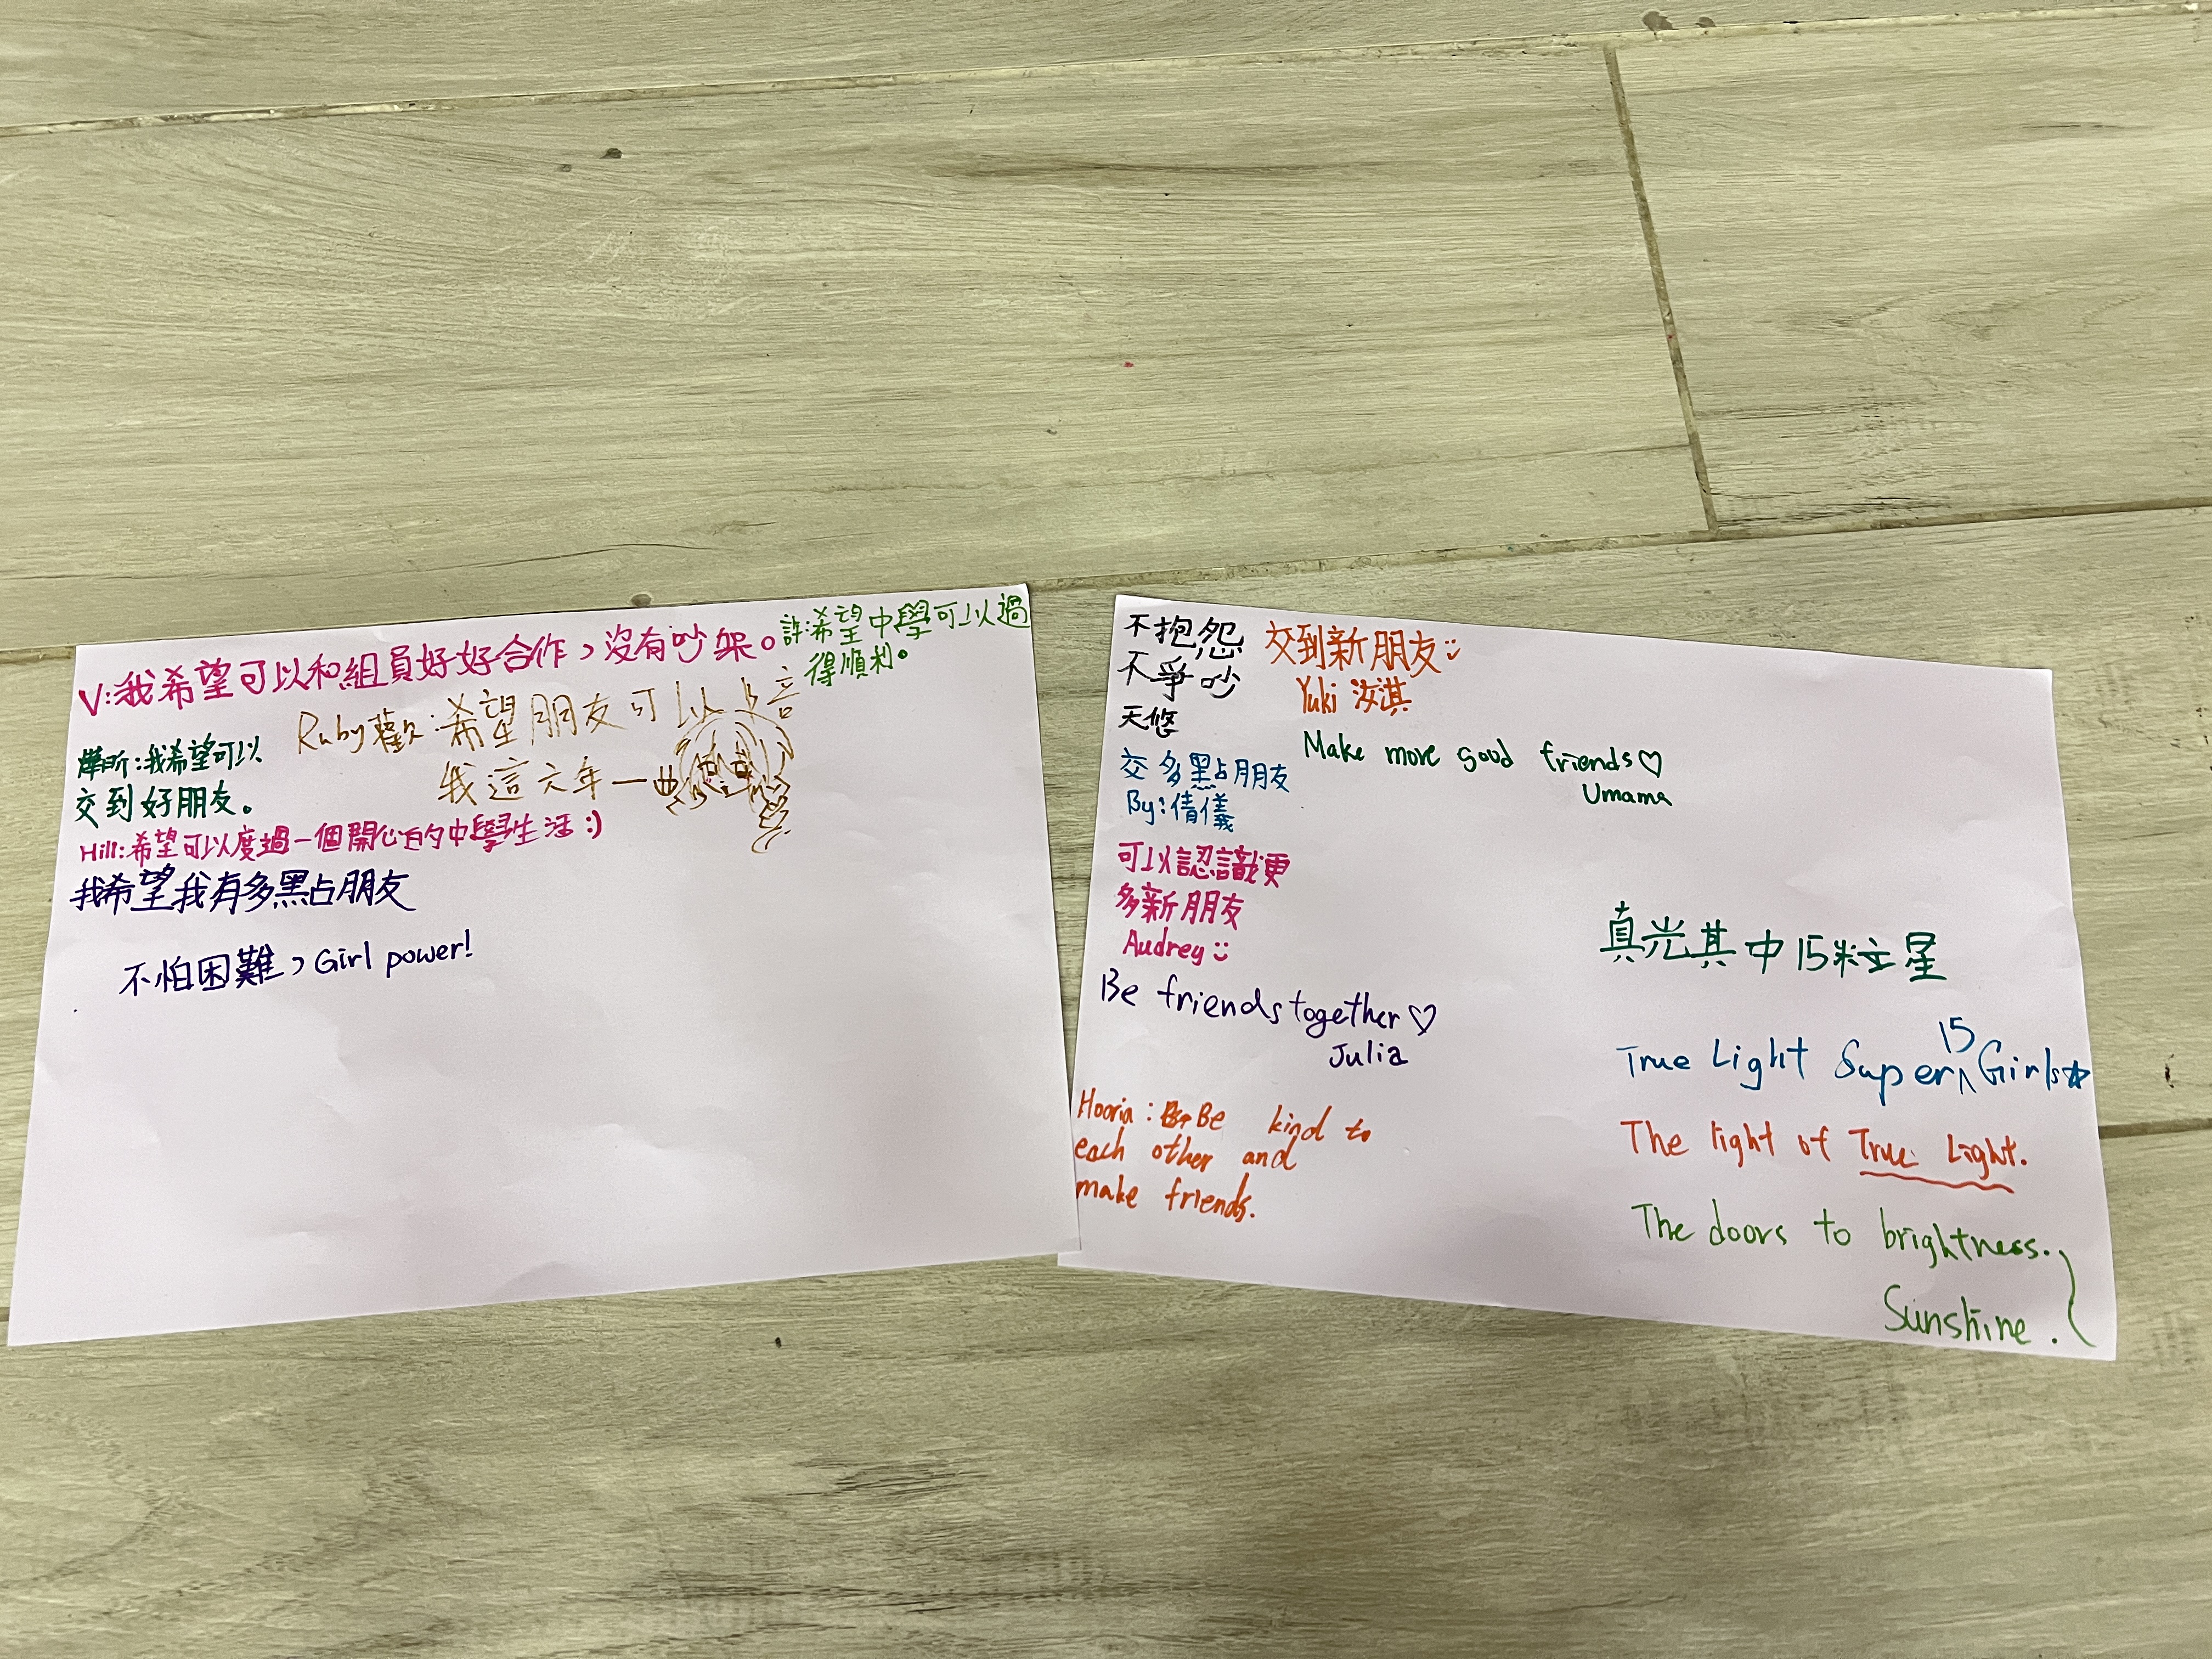 V:我希望可以和組員好好合作，沒有吵架。
許:希望中學可以過
得順利。
Ruby歡:希望朋友可以
我這六年一
我希望可以
交到好朋友。
Hill:希望可以度過一個開心的中學生活:)
我希望我有多點朋友
不怕困難，Girl power!
不抱怨
不爭吵
天悠
交到新朋友
Yuki 汝淇
Make more good friends♡
Umama
交多點朋友
By:倩儀
可以認識更
多新朋友
Audrey
Be friends together♡
Julia
Hooria: Be kind to
each other and
make friends.
真光其中15粒星
True Light Super 15 Girls☆
The light of True Light.
The doors to brightness.
Sunshine.